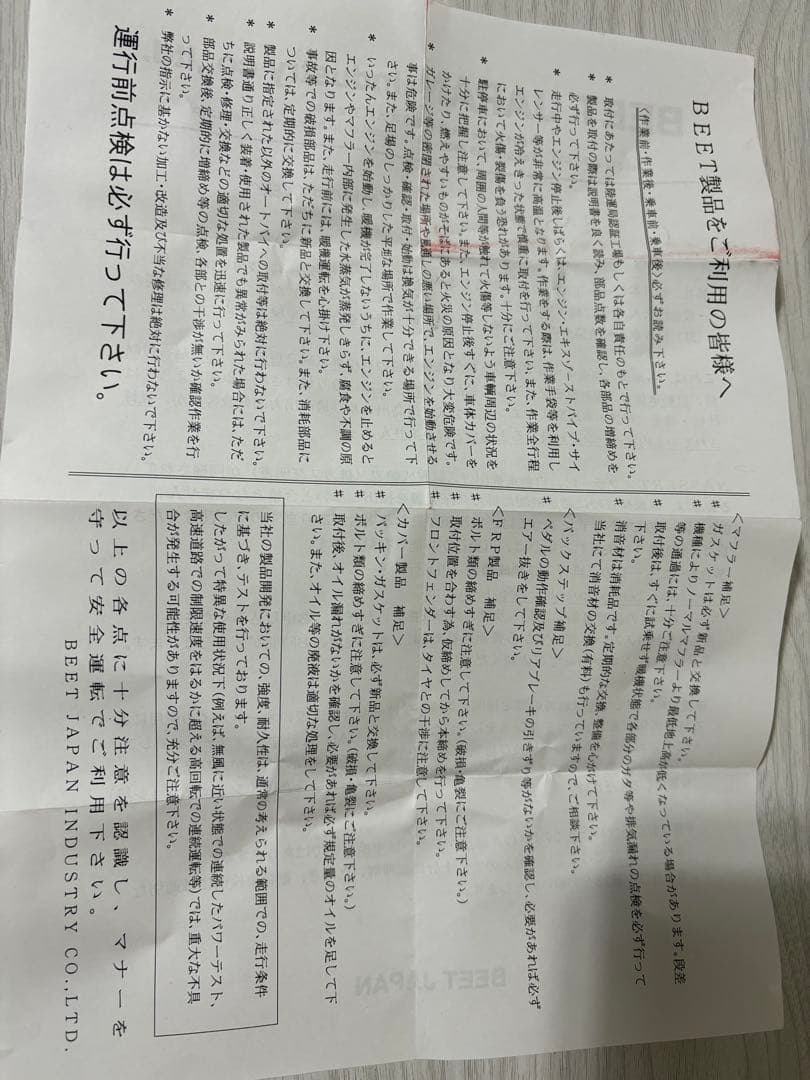 BEET製品をご利用の皆様へ
<作業前・作業後・乗車前・乗車後> 必ずお読み下さい。
* 取付にあたっては陸運局認証工場もしくは各自責任のもとで行って下さい。
* 製品を取付の際は説明書を良く読み、部品点数を確認し、各部品の増締めを
必ず行って下さい。
* 走行中やエンジン停止後しばらくは、エンジン・エキスゾーストパイプ・サイ
レンサー等が非常に高温となります。作業をする際は、作業手袋等を利用し
エンジンが冷えきった状態で慎重に取付を行って下さい。また、作業全行程
において火傷・裂傷を負う恐れがあります。十分にご注意下さい。
* 駐停車において、周囲の人間等が触れて火傷等しないよう車輌周辺の状況を
十分に把握し注意して下さい。また、エンジン停止後すぐに、車体カバーを
かけたり、燃えやすいものがそばにあると火災の原因となり大変危険です。
* ガレージ等の密閉された場所や風通しの悪い場所で、エンジンを始動させる
事は危険です。点検・確認・取付・始動は換気が十分できる場所で行って下
さい。また、足場のしっかりした平坦な場所で作業して下さい。
* いったんエンジンを始動し、暖機が完了しないうちに、エンジンを止めると
エンジンやマフラー内部に発生した水蒸気が蒸発しきらず、腐食や不調の原
因となります。また、走行前には、暖機運転を心掛け下さい。
* 事故等での破損部品は、ただちに新品と交換して下さい。また、消耗部品に
ついては、定期的に交換して下さい。
* 製品に指定された以外のオートバイへの取付等は絶対に行わないで下さい。
* 説明書通り正しく装着・使用された製品でも異常がみられた場合には、ただ
ちに点検・修理・交換などの適切な処置を迅速に行って下さい。
* 部品交換後、定期的に増締め等の点検、各部との干渉が無いか確認作業を行
って下さい。
* 弊社の指示に基かない加工・改造及び不当な修理は絶対に行わないで下さい。
運行前点検は必ず行って下さい。
<マフラー補足>
# ガスケットは必ず新品と交換して下さい。
# 機種によりノーマルマフラーより最低地上高が低くなっている場合があります。段差
等の通過には、十分ご注意下さい。
# 取付後は、すぐに試乗せず暖機状態で各部分のガタ等や排気漏れの点検を必ず行って
下さい。
# 消音材は消耗品です。定期的な交換、整備を心がけて下さい。
当社にて消音材の交換(有料)も行っていますので、ご相談下さい。
<バックステップ補足>
# ペダルの動作確認及びリアブレーキの引きずり等がないかを確認し、必要があれば必ず
エアー抜きをして下さい。
<FRP製品 補足>
# ボルト類の締めすぎに注意して下さい。(破損・亀裂にご注意下さい。)
# 取付位置を合わす為、仮締めしてから本締めを行って下さい。
# フロントフェンダーは、タイヤとの干渉に注意して下さい。
<カバー製品 補足>
# パッキン・ガスケットは、必ず新品と交換して下さい。
# ボルト類の締めすぎに注意して下さい。(破損・亀裂にご注意下さい。)
# 取付後、オイル漏れがないかを確認し、必要があれば必ず規定量のオイルを足して下
さい。また、オイル等の廃液は適切な処理をして下さい。
当社の製品開発においての、強度、耐久性は、通常の考えられる範囲での、走行条件
に基づき、テストを行っております。
したがって特異な使用状況下(例えば、無風に近い状態での連続したパワーテスト、
高速道路での制限速度をはるかに超える高回転での連続運転等)では、重大な不具
合が発生する可能性がありますので、充分ご注意下さい。
以上の各点に十分注意を認識し、マナーを
守って安全運転でご利用下さい。
BEET JAPAN INDUSTRY CO.,LTD.
BEET JAPAN